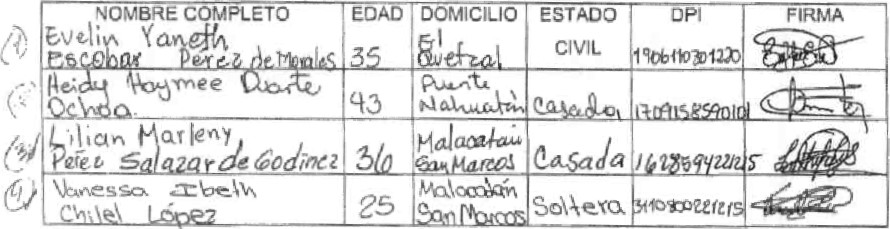 NOMBRE COMPLETO EDAD DOMICILIO ESTADO CIVIL DPI FIRMA
Evelin Yaneth
Escobar Pérez de Morales 35 El Quetzal 1906110301220
Heidy Haymee Duarte
Ochoa 43 Puente Nahuatán Casada 1709158590101
Lilian Marleny
Pérez Salazar de Godinez 36 Malacatán San Marcos Casada 1628594221215
Vanessa Ibeth
Chilel López 25 Malacatán San Marcos Soltera 3110800221215